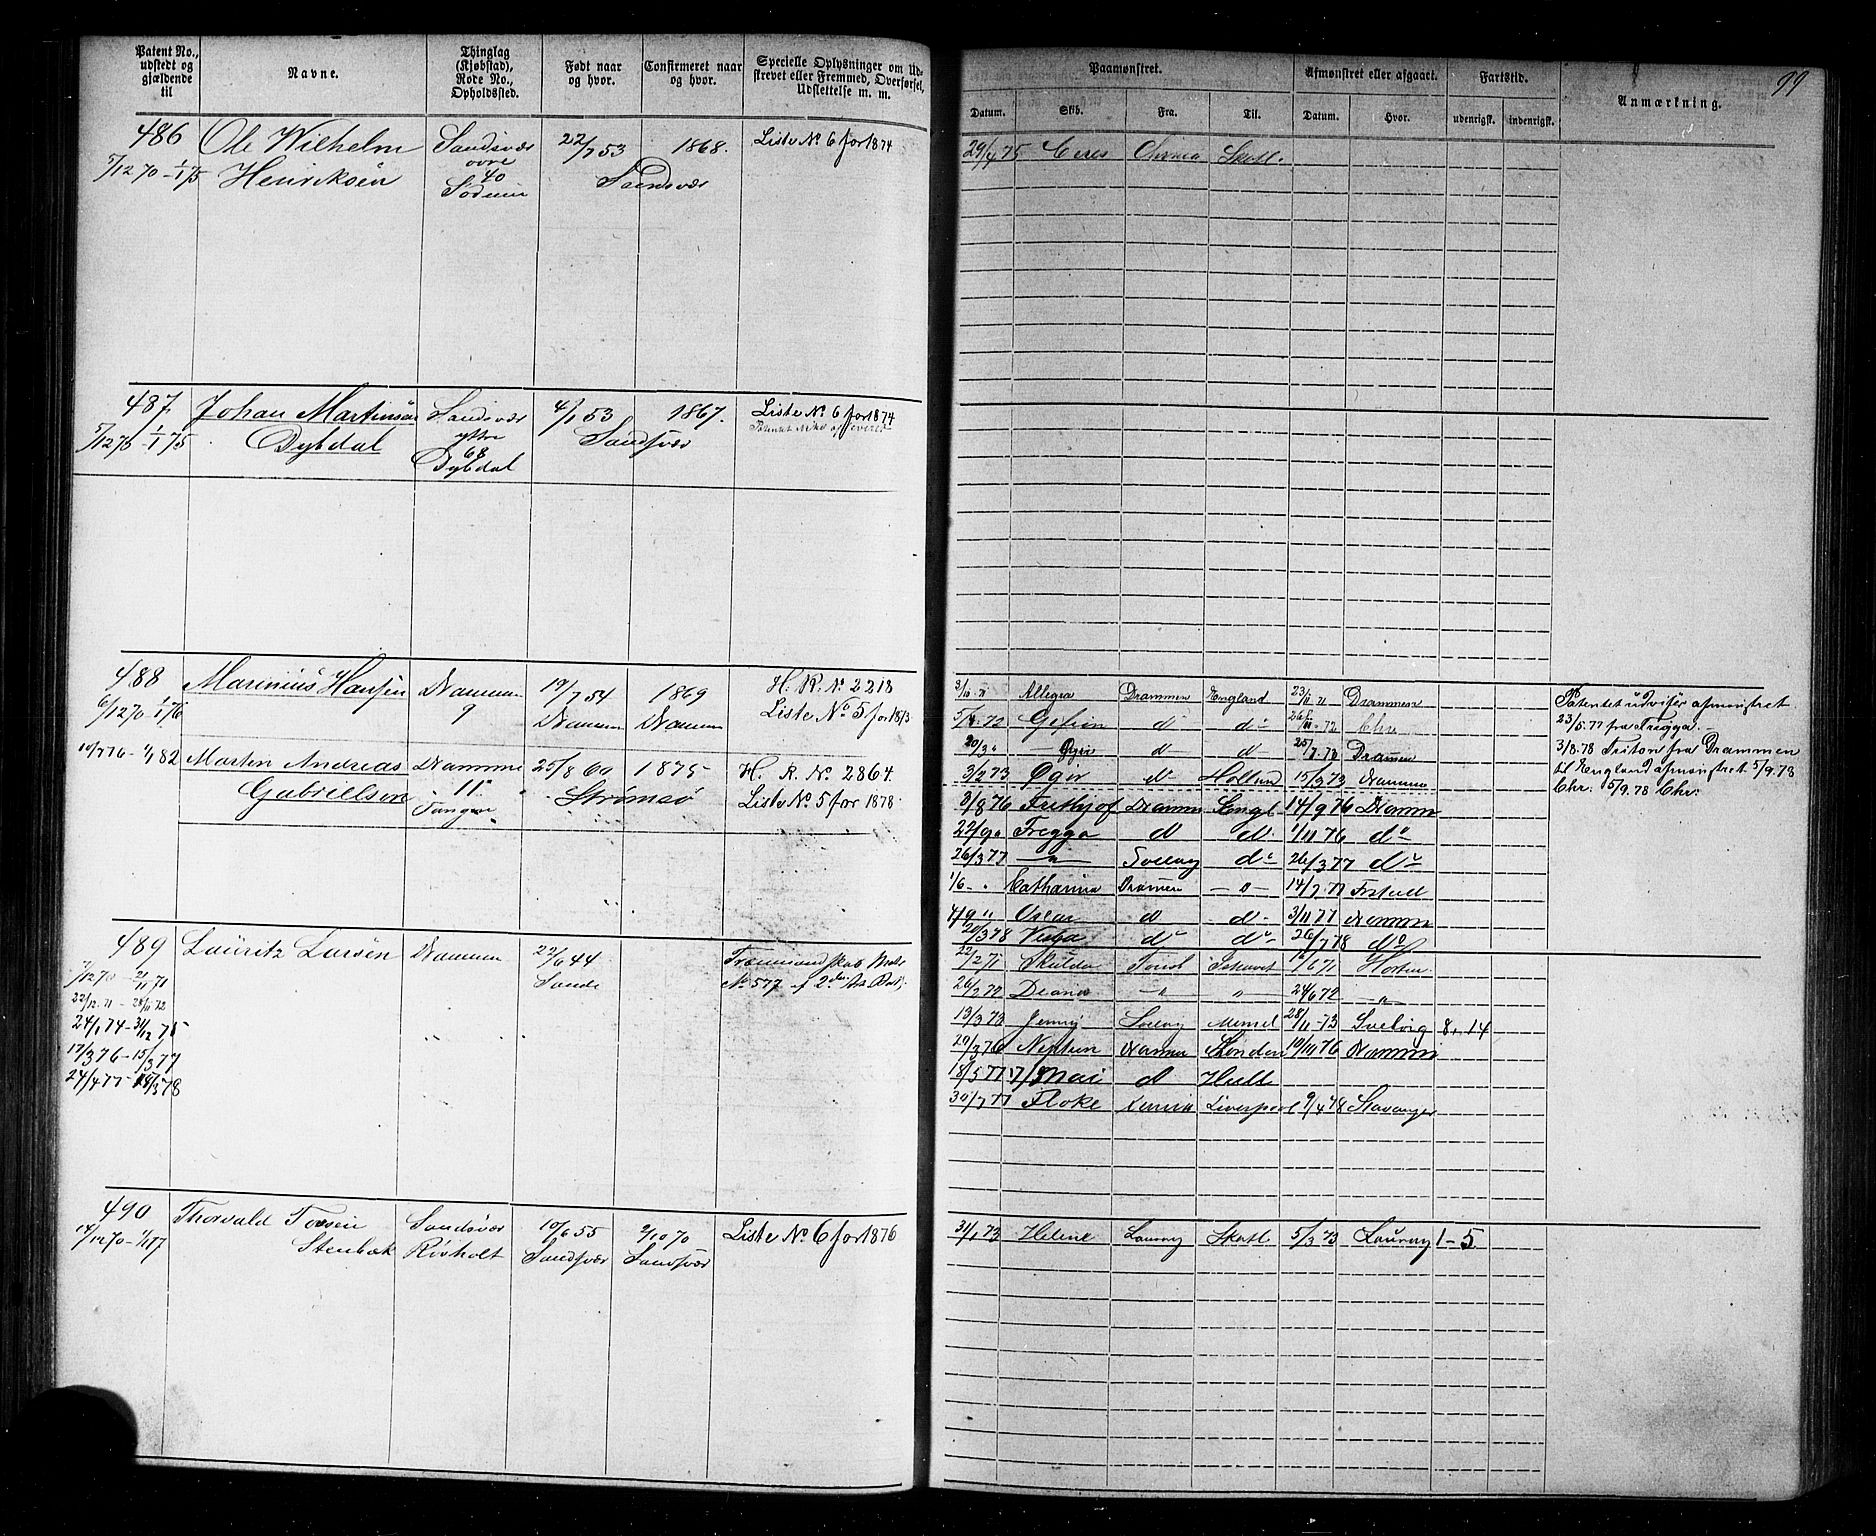 99
Patent No., udstedt og gjældende til
Navne.
Thinglag (Kjøbstad), Rode No., Opholdssted.
Født naar og hvor.
Confirmeret naar og hvor.
Specielle Oplysninger om Udstrevet eller Fremmed, Overførsel, Udslettelse m. m.
Paamønstret.
Afmønstret eller afgaaet.
Fartstid.
Anmærkning.
Datum. Skib. Fra. Til. Datum. Hvor. udenrigsk. indenrigsk.
486 Ole Wilhelm Sandsvær 22/7 53 1868. Liste No 6 for 1874
7/12 70 – 1/1 75 Henriksen øvre 40 Sandsvær
29/4 75 Ceres Skotl.
487. Johan Martinsen Sandsvær 4/1 53 1867. Liste No 6 for 1874
7/12 70 – 1/1 75 Dybdal ytre 68 Sandsvær
Dybdal
488 Marinius Hansen Drammen 19/7 54 1869 H. R. No 2218
6/12 70 – 1/1 76 9 Drammen Drammen Liste No 5 for 1873
10/7 76 – 1/1 82 Marten Andreas Drammen 25/8 60 1875 H. R. No 2864.
Gabrielsen 11 Tangen Strømsø Liste No 5 for 1878
3/10 71 Allegra Drammen England 23/11 71 Drammen
5/4 72 Gefion d d 72 Chr
20/3 Ægir d d 25/7 73 Drammen
3/2 73 Ægir d Holland 15/3 73 Drammen
3/8 76 Frithjof Drammn Engl 14/9 76 Drammn
22/9 Fregga d d 1/11 76 do
26/3 77 – " – Svelvig do 26/3 77 do
1/6 – " Catharina Drammen – " – 14/7 77 Frstad
4/9 " Oscar d d 3/11 77 Drammen
20/3 78 Vesta do do 26/7 78 do
Patentet udviser afmønstret
23/5.77 fra Fregga.
3/8.78 Triton fra Drammen
til England afmønstret 5/9.78
Chr. 5/9.78 Chr:
489 Lauritz Larsen Drammen 22/6 44
7/12 70 – 21/11 71 Sande No 577
22/12.71 – 28/11 72
24/1 74 – 31/12 75
17/3 76 – 15/3 77
24/4 77 – 3 78
22/2 71 Skulda 6 71 Horten
26/2 72 Diana – " – " 24/6 72 – " –
13/3 73 Jenny Svelvig Memel 28/11 – 73 Svelvig 8, 14
29/3 76 Neptun Drammen London 19/10 76 Drammen
18/5 77 17/Mai d Hull
30/7 77 Floke Liverpool 9/4 78 Stavanger
490 Thorvald Torsen Sandsvær 10/6 55 2/10 70 Liste No 6 for 1876
14/12 70 – 1/1 77 Stenbæk Risholt Sandsvær Sandsvær
31/1 73 Helene Laurvig Skotl 5/3 73 Laurvig 1 – 5